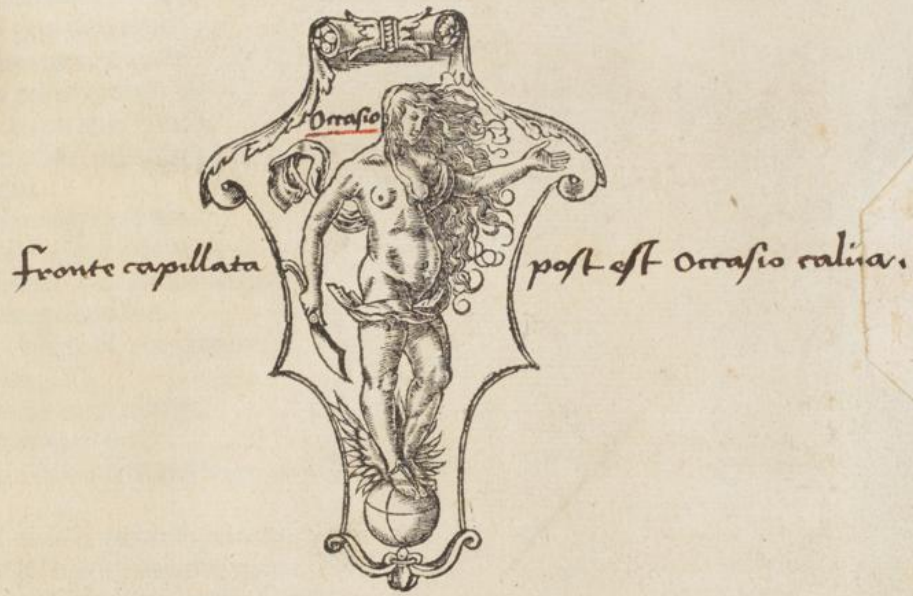 Occasio
fronte capillata post est Occasio calua.